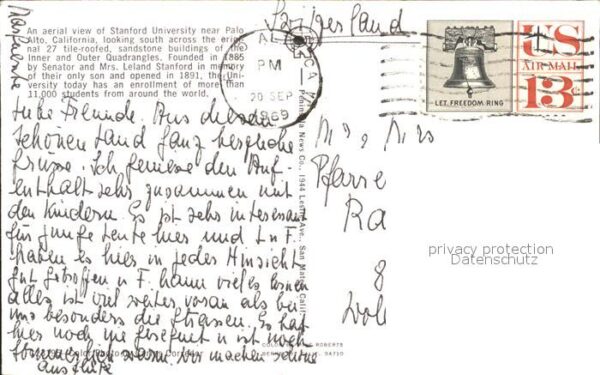 An aerial view of Stanford University near Palo
Alto, California, looking south across the origi-
nal 27 tile-roofed, sandstone buildings of the
Inner and Outer Quadrangles. Founded in 1885
by Senator and Mrs. Leland Stanford in memory
of their only son and opened in 1891, the Uni-
versity today has an enrollment of more than
11,000 students from around the world.
Liebe Freunde. Aus diesem
schönen Land ganz herzliche
Grüsse. Ich geniesse den Auf-
enthalt sehr zusammen mit
den Kindern. Es ist sehr interessant
für junge Leute hier und L u F.
haben es hier in jeder Hinsicht
gut getroffen u F. kann vieles lernen
alles ist viel weiter voran als bei
uns besonders die Strassen. Es hat
hier noch nie geregnet u ist noch
sommerlich warm. Wir machen schöne
Ausflüge
Marguerite
Switzerland
PM
20 SEP
1969
LET FREEDOM RING
US
AIR MAIL
13c
Mr., Mrs
Pfarre
Ra
8
Woh
privacy protection
Datenschutz
News Co., 1944 Leslie Ave., San Mateo, Calif.